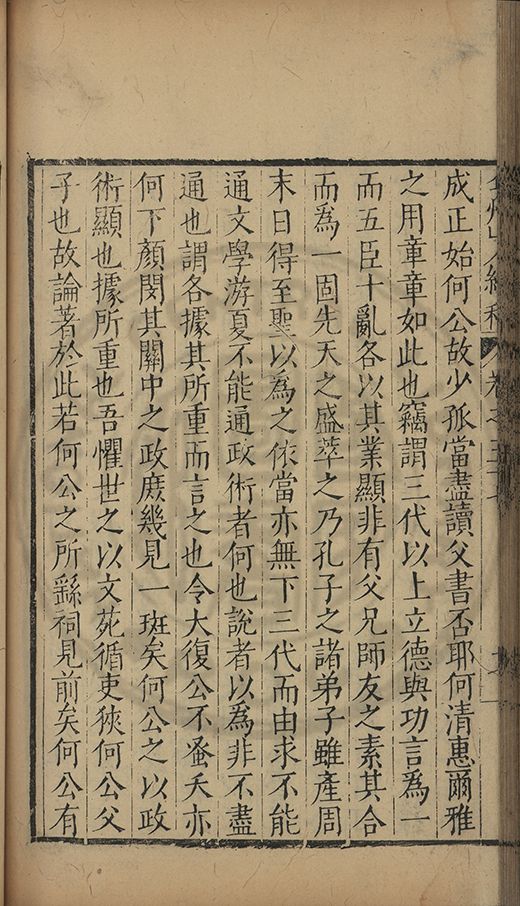 成正始何公故少孤當盡讀父書否耶何清惠爾雅
之用章章如此也竊謂三代以上立德與功言爲一
而五臣十亂各以其業顯非有父兄師友之素其合
而爲一固先天之盛萃之乃孔子之諸弟子雖產周
末日得至聖以爲之依當亦無下三代而由求不能
通文學游夏不能通政術者何也說者以爲非不盡
通也謂各據其所重而言之也令大復公不蚤夭亦
何下顏閔其關中之政庶幾見一斑矣何公之以政
術顯也據所重也吾懼世之以文苑循吏狹何公父
子也故論著於此若何公之所繇祠見前矣何公有